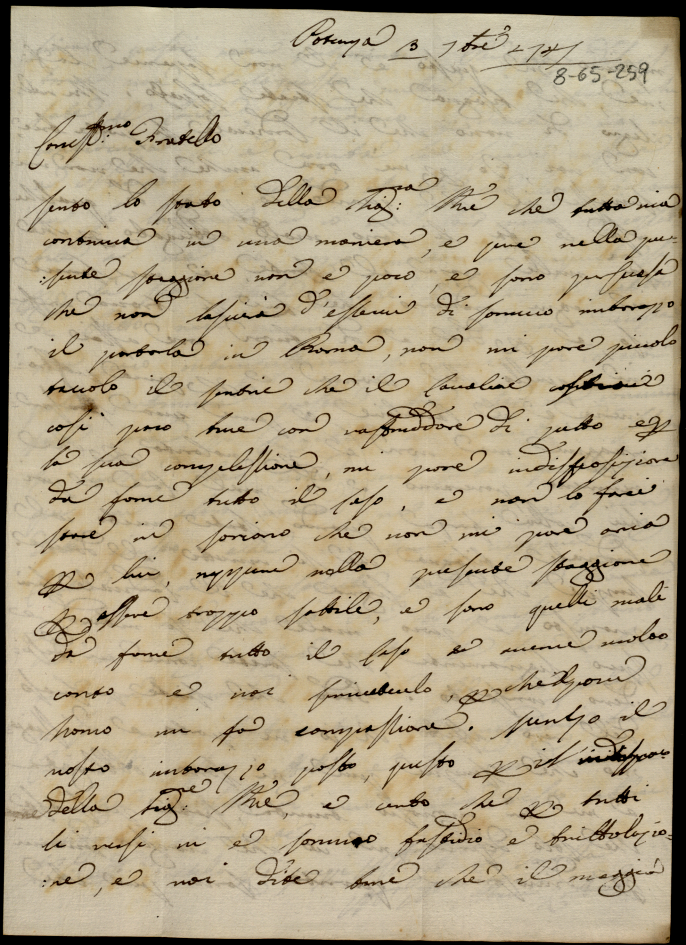 3 7bre 1747
8-65-259
Cariss:mo Fratello
sento lo stato della Sig:ra Mre che tuttavia
continua in una maniera, e pure nella pre-
:sente staggione non è poco, e sono persuasa
che non lascierà d'esservi di sommo imbarazo
il portarla in Roma, non mi pare piccolo
il sentire che il Cavaliere
così poco bene con raffreddore di petto e p
la sua complessione, mi pare indisposizione
da farne tutto il caso, e non lo farei
stare in Soriano che non mi pare aria
p lui, neppure nella presente staggione
p essere troppo sottile, e sono quelli mali
da farne tutto il caso e averne molto
conto e voi sentitelo, p che povero
homo mi fa compassione. Sento il
vostro imbarazzo posto, questo p il
della Sig:re Mre, e certo che p tutti
li versi vi è sommo fastidio e
:ne, e voi dite bene che il maggior